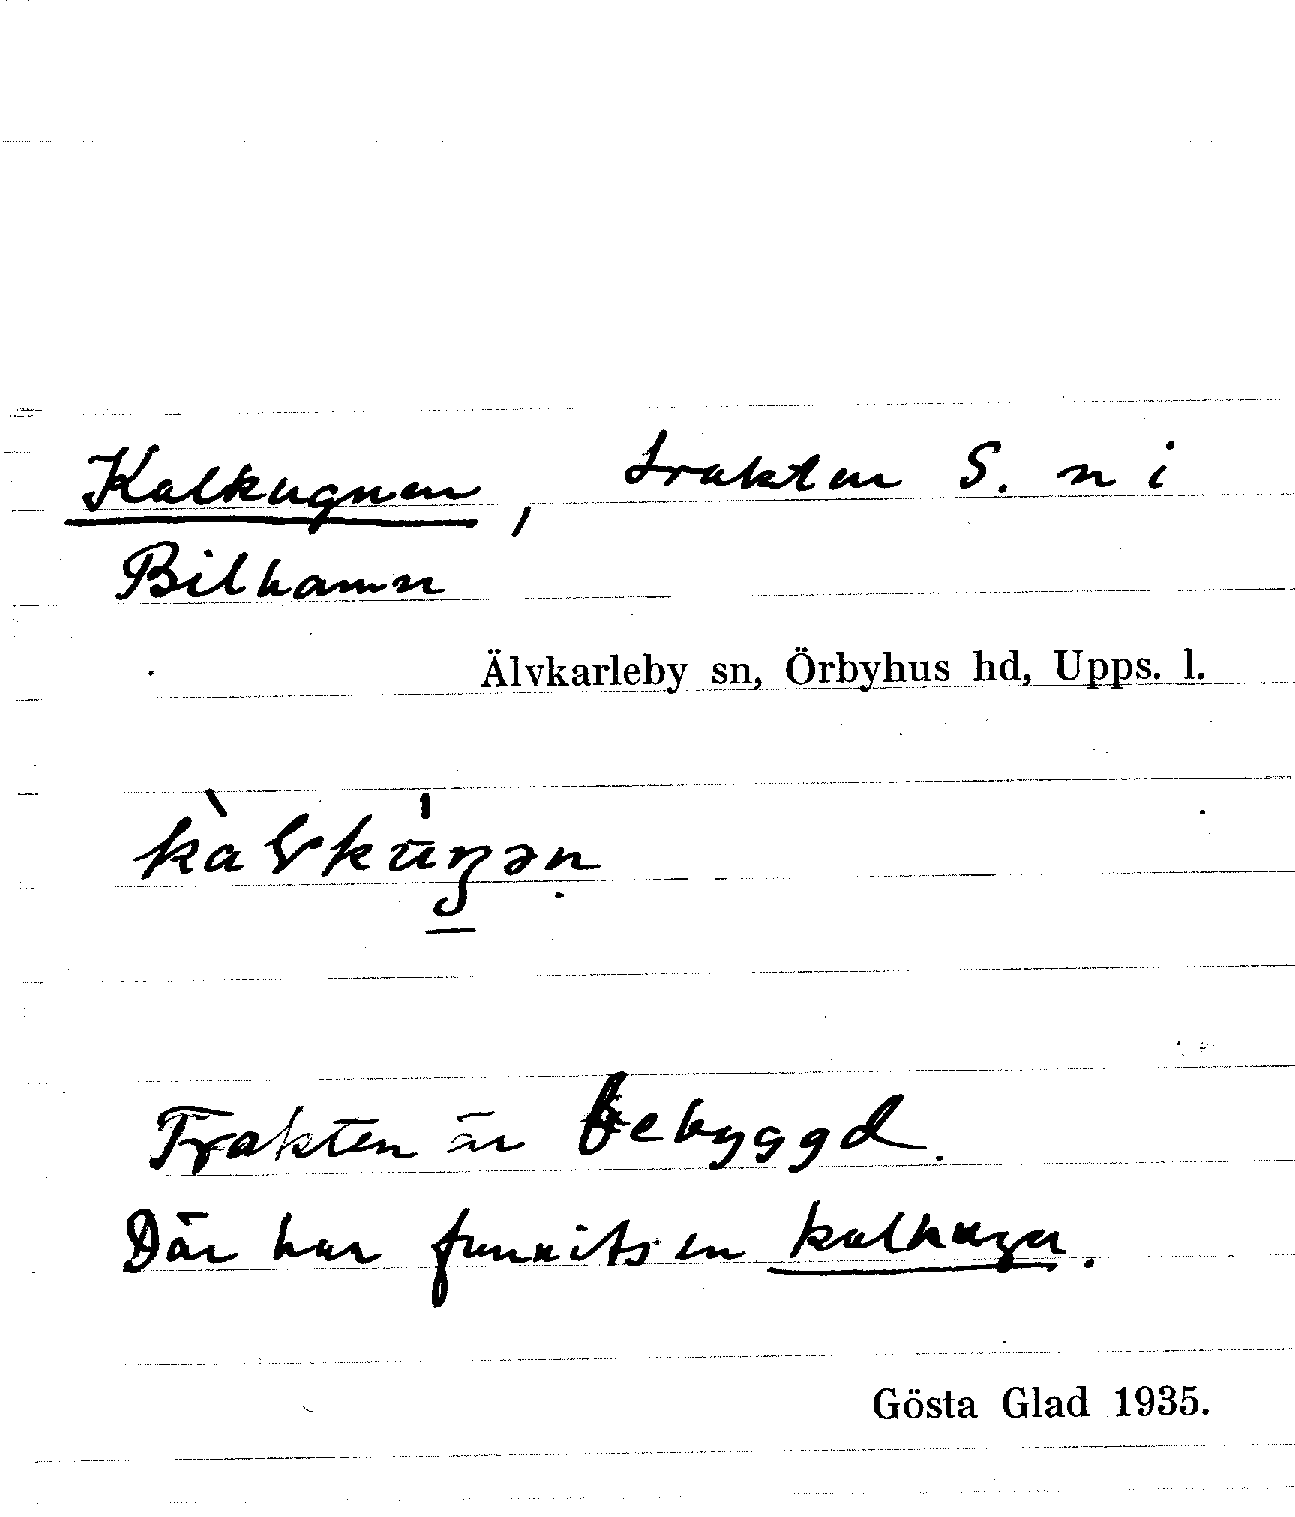 Kalkugnen, trakten S. n i
Bilhamn
Älvkarleby sn, Örbyhus hd, Upps. l.
Trakten är bebyggd.
Där har funnits en kalkugn.
Gösta Glad 1935.